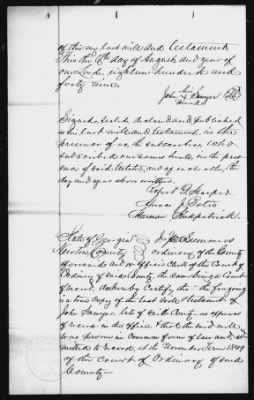 of this my last will and testament
This the 6th day of August and year of
our Lord, eighteen hundred and
forty nine.
his
John X Sawyer
mark
Signed sealed declared and published
as his last will and testament in the
presence of us the subscribers, who
subscribed our names hereto, in the pres-
ence of said testator, and of each other, the
day and year above written.
Robert D. Harper
Isaac J.
Harman Fitzpatrick.
State of Georgia
Newton County
I Summers
ordinary of the County
aforesaid and ex officio Clerk of the Court of
Ordinary of said County, the same being a Court
of record, do hereby Certify, that the foregoing
is a true Copy of the last will & testament of
John Sawyer, late of said County as appears
of record in this office. That the said will
was proven in Common form of law and ad-
mitted to record, at the November Term 1849
of the Court of Ordinary of said
County